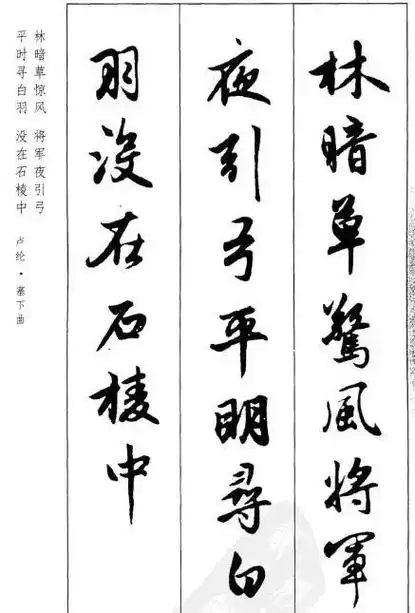 林暗草驚風将軍
夜引弓平明尋白
羽没在石棱中
林暗草惊风 将军夜引弓
平时寻白羽 没在石棱中
卢纶·塞下曲